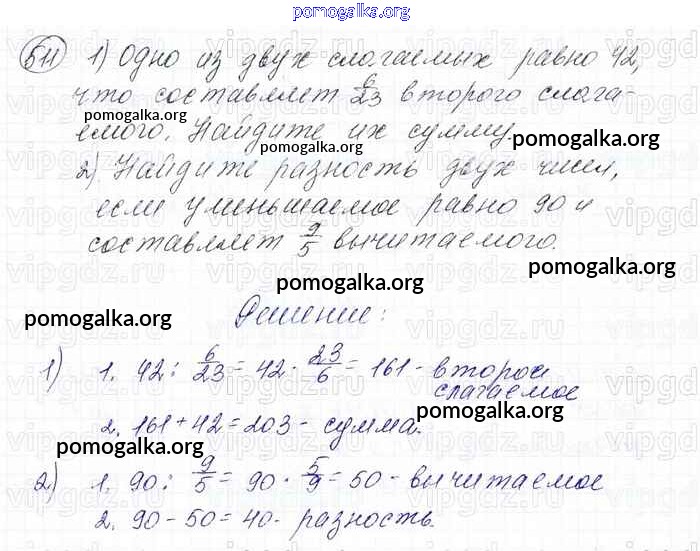 pomogalka.org
511 1) Одно из двух слагаемых равно 42,
что составляет 6/23 второго слага-
емого. Найдите их сумму.
2) Найдите разность двух чисел,
если уменьшаемое равно 90 и
составляет 9/5 вычитаемого.
Решение:
1) 1. 42 : 6/23 = 42 · 23/6 = 161 - второе
слагаемое
2. 161 + 42 = 203 - сумма.
2) 1. 90 : 9/5 = 90 · 5/9 = 50 - вычитаемое
2. 90 - 50 = 40 - разность.
pomogalka.org
pomogalka.org
pomogalka.org
pomogalka.org
pomogalka.org
pomogalka.org
pomogalka.org
pomogalka.org